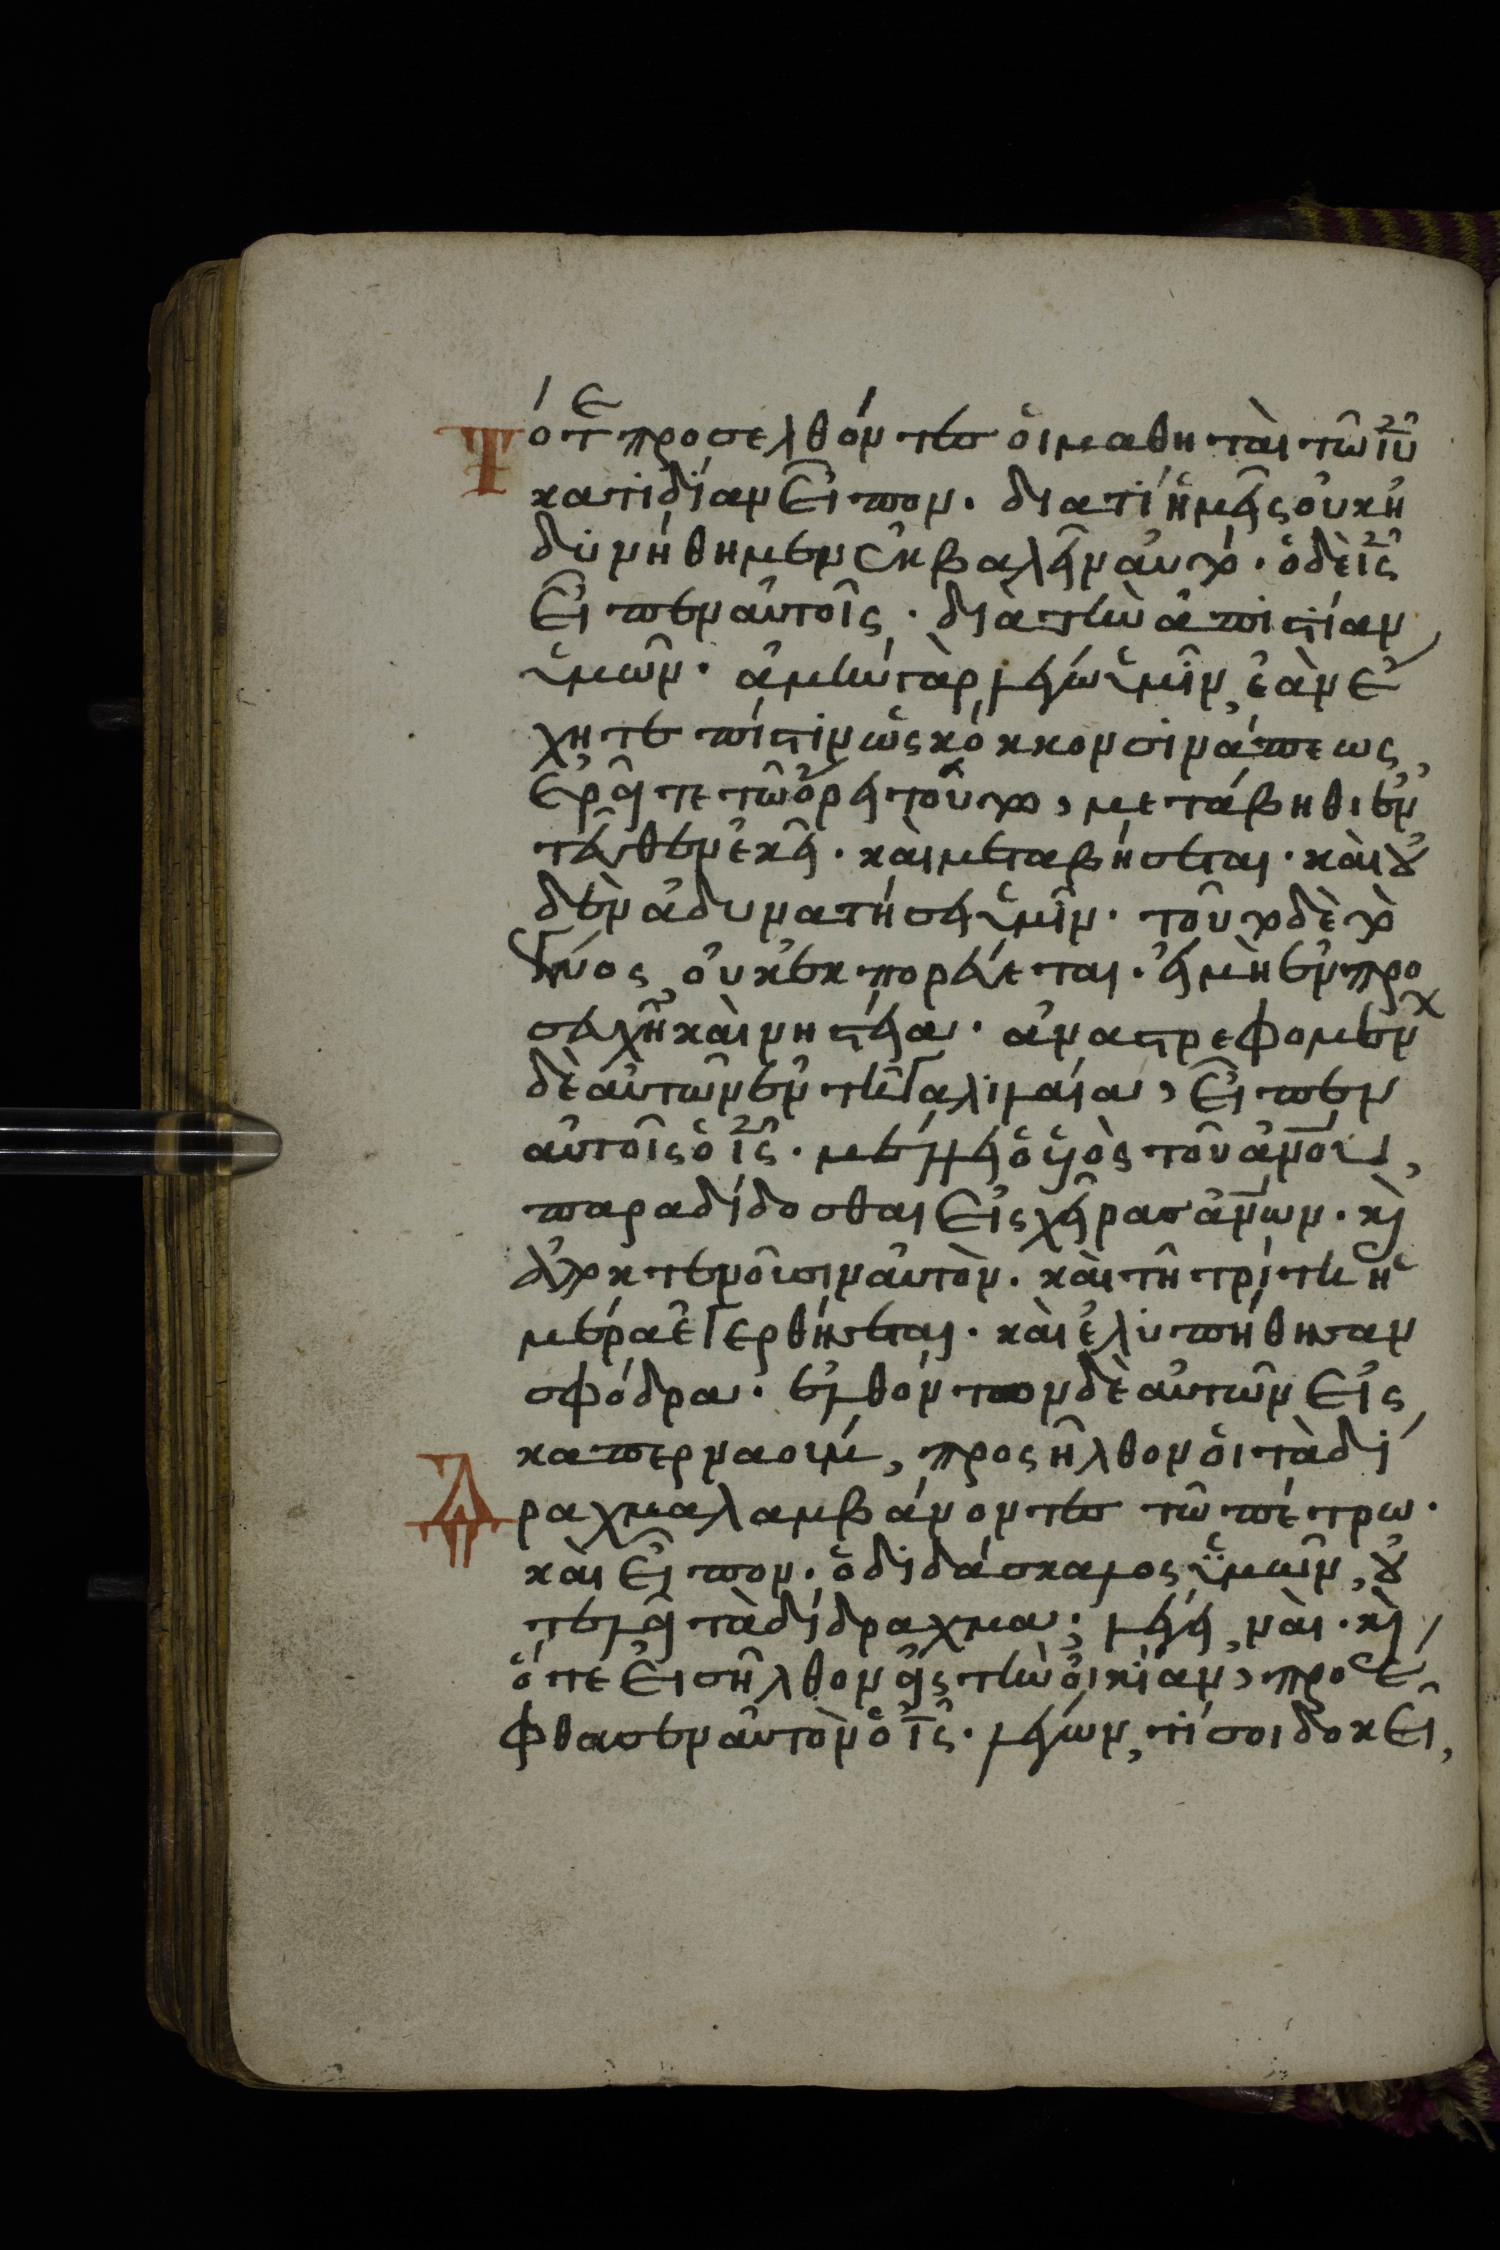 Τότε προσελθόντες ὁι μαθηταὶ τῶ ἰῦ
κατιδίαν εἶπον. διατί ἡμεῖς οὐκ ἠ
δυνήθημεν ἐκβαλεῖν αὐτό. ὁ δὲ ἰς
εἶπεν αὐτοῖς. διὰ τὴν ἀπιστίαν
ὑμῶν. ἀμὴν γὰρ λέγω ὑμῖν, ἐὰν ἔ
χητε πίστιν ὡς κόκκον σινάπεως,
ἐρεῖτε τῶ ὄρει τούτω, μετάβηθι ἐν
τεῦθεν ἐκεῖ. καὶ μεταβήσεται. καὶ οὐ
δὲν ἀδυνατήσει ὑμῖν. τοῦτο δὲ τὸ
γένος, οὐκ ἐκπορεύεται. εἰ μὴ ἐν προ
σευχῆ καὶ νηστεία. ἀναστρεφομένων
δὲ αὐτῶν ἐν τῆ Γαλιλαία, εἶπεν
αὐτοῖς ὁ ἰς. μέλλει ὁ υἱὸς τοῦ ἀνου,
παραδίδοσθαι εἰς χεῖρας ἀνων. κὶ
ἀποκτενοῦσιν αὐτὸν. καὶ τῆ τρίτη ἡ
μέρα ἐγερθήσεται. καὶ ἐλυπήθησαν
σφόδρα. ἐλθόντων δὲ αὐτῶν εἰς
καπερναούμ, προςῆλθον ὁι τὰ δί
δραχμα λαμβάνοντες τῶ πέτρω.
καὶ εἶπον. ὁ διδάσκαλος ὑμῶν, οὐ
τελεῖ τὰ δίδραχμα; λέγει, ναὶ. κὶ
ὅτε εἰσῆλθον εἰς τὴν οἰκίαν, προέ
φθασεν αὐτὸν ὁ ἰς. λέγων, τί σοι δοκεῖ,